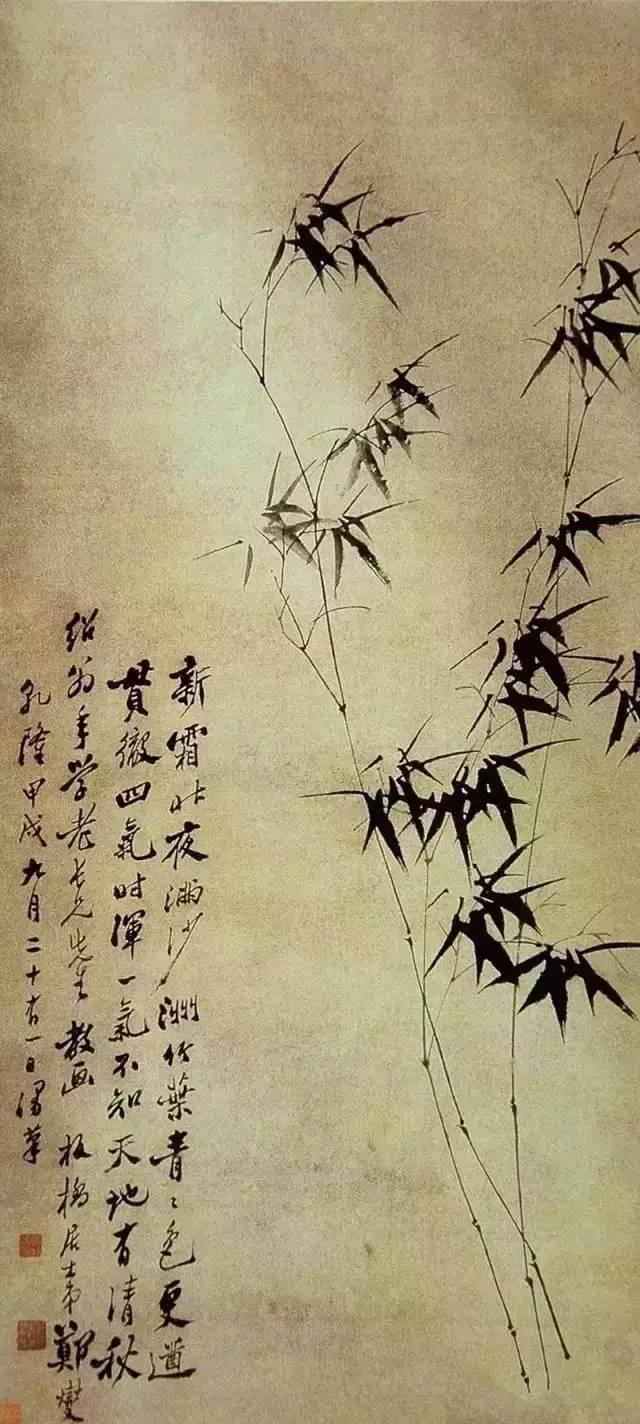 新霜昨夜满沙洲竹葉青〻色更遒
貫徹四氣时渾一氣不知天地有清秋
绍翁年学老长兄先生教画板橋居士弟鄭燮
乹隆甲戌九月二十有一日漫筆